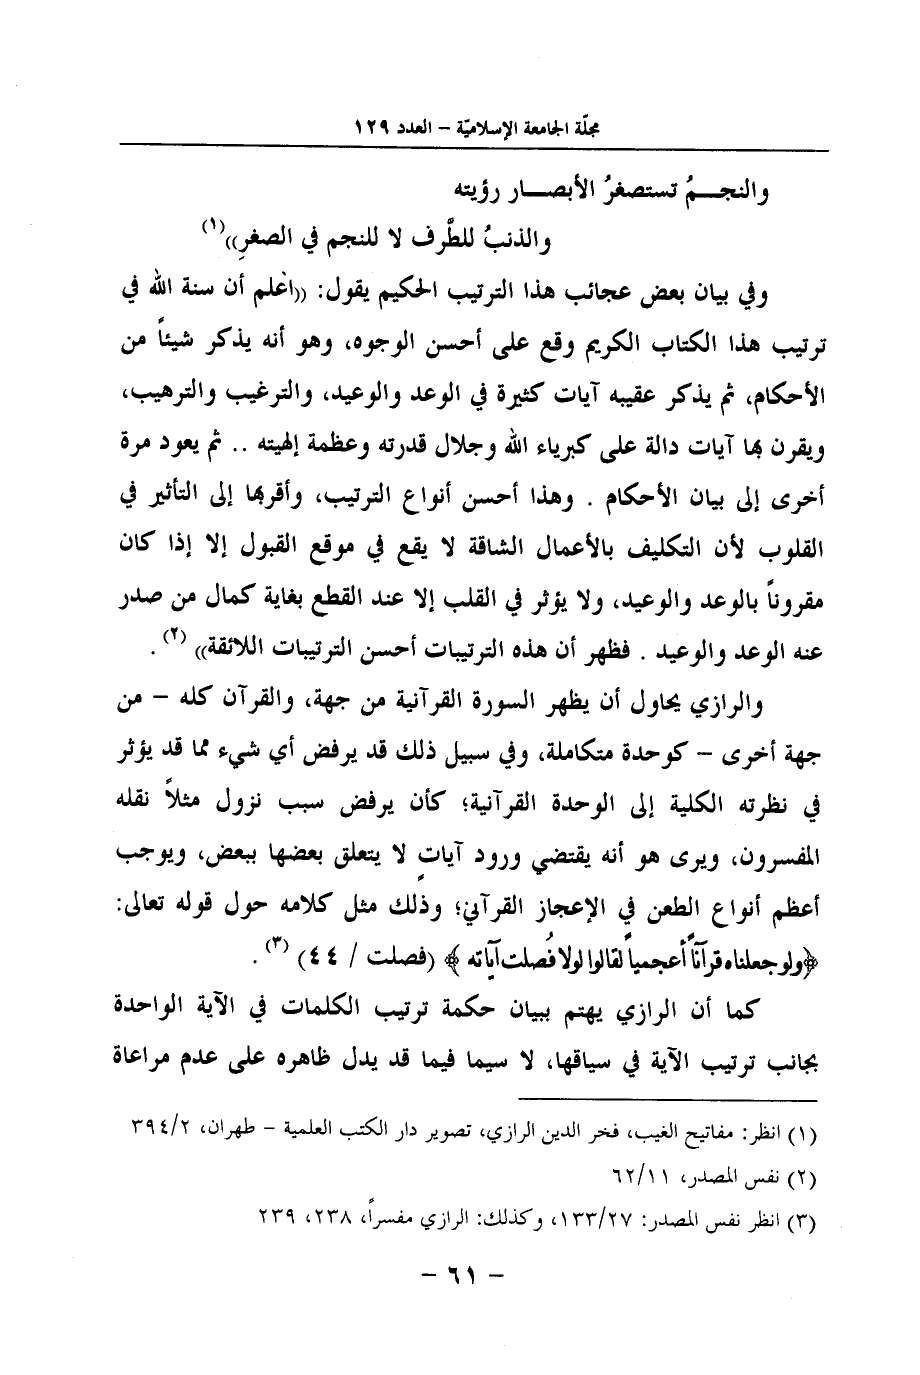 مجلّة الجامعة الإسلاميّة – العدد ١٢٩
والنجـــمُ تستصغرُ الأبصـــار رؤيته
والذنبُ للطَّرف لا للنجم في الصغرِ))(١)
وفي بيان بعض عجائب هذا الترتيب الحكيم يقول: ((اعْلم أن سنة الله في
ترتيب هذا الكتاب الكريم وقع على أحسن الوجوه، وهو أنه يذكر شيئاً من
الأحكام، ثم يذكر عقيبه آيات كثيرة في الوعد والوعيد، والترغيب والترهيب،
ويقرن بها آيات دالة على كبرياء الله وجلال قدرته وعظمة إلهيته .. ثم يعود مرة
أخرى إلى بيان الأحكام . وهذا أحسن أنواع الترتيب، وأقربها إلى التأثير في
القلوب لأن التكليف بالأعمال الشاقة لا يقع في موقع القبول إلا إذا كان
مقروناً بالوعد والوعيد، ولا يؤثر في القلب إلا عند القطع بغاية كمال من صدر
عنه الوعد والوعيد . فظهر أن هذه الترتيبات أحسن الترتيبات اللائقة)) (٢) .
والرازي يحاول أن يظهر السورة القرآنية من جهة، والقرآن كله – من
جهة أخرى – كوحدة متكاملة، وفي سبيل ذلك قد يرفض أي شيء مما قد يؤثر
في نظرته الكلية إلى الوحدة القرآنية؛ كأن يرفض سبب نزول مثلاً نقله
المفسرون، ويرى هو أنه يقتضي ورود آياتٍ لا يتعلق بعضها ببعض، ويوجب
أعظم أنواع الطعن في الإعجاز القرآني؛ وذلك مثل كلامه حول قوله تعالى:
﴿ولو جعلناه قرآناً أعجمياً لقالوا لولا فُصلت آياته ﴾ (فصلت / ٤٤) (٣) .
كما أن الرازي يهتم ببيان حكمة ترتيب الكلمات في الآية الواحدة
بجانب ترتيب الآية في سياقها، لا سيما فيما قد يدل ظاهره على عدم مراعاة
(١) انظر: مفاتيح الغيب، فخر الدين الرازي، تصوير دار الكتب العلمية – طهران، ٣٩٤/٢
(٢) نفس المصدر، ٦٢/١١
(٣) انظر نفس المصدر: ١٣٣/٢٧، وكذلك: الرازي مفسراً، ٢٣٨، ٢٣٩
– ٦١ –